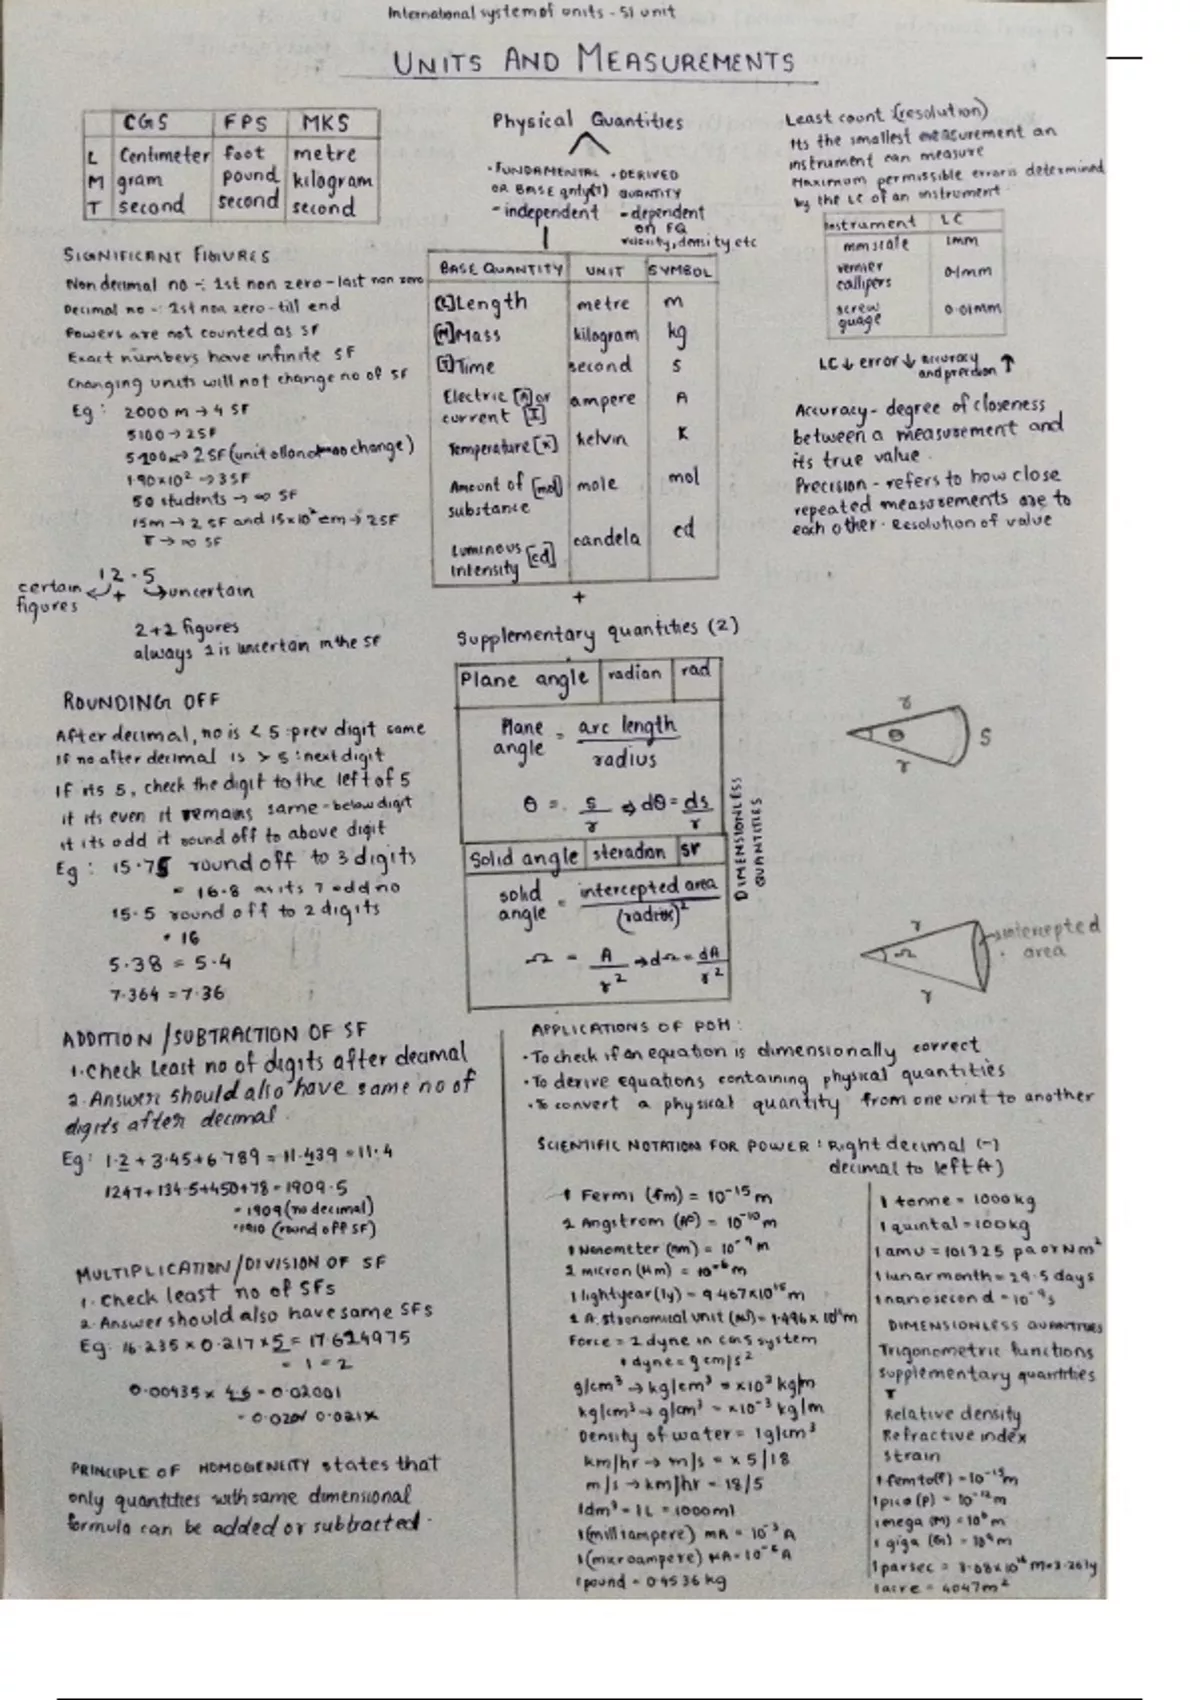 International system of units - SI unit
UNITS AND MEASUREMENTS
CGS FPS MKS
L Centimeter foot metre
M gram pound kilogram
T second second second
SIGNIFICANT FIGURES
Non decimal no -: 1st non zero - last non zero
Decimal no -: 1st non zero - till end
Powers are not counted as SF
Exact numbers have infinite SF
Changing units will not change no of SF
Eg: 2000 m → 4 SF
5100 → 2SF
1.90x10² → 3SF
50 students → ∞ SF
15m → 2 SF and 15x10² cm → 2SF
π → ∞ SF
12.5
certain figures + uncertain
2+1 figures
always 1 is uncertain in the SF
ROUNDING OFF
After decimal, no is < 5 : prev digit same
If no after decimal is > 5 : next digit
If its 5, check the digit to the left of 5
if its even it remains same - below digit
if its odd it round off to above digit
Eg: 15.75 round off to 3 digits
= 16.8 as its 7 odd no
15.5 round off to 2 digits
= 16
5.38 = 5.4
7.364 = 7.36
ADDITION / SUBTRACTION OF SF
1. Check Least no of digits after decimal
2. Answer should also have same no of
digits after decimal.
Eg: 1.2 + 3.45 + 6.789 = 11.439 = 11.4
1247 + 134.5 + 450 + 78 = 1909.5
= 1909 (no decimal)
= 1910 (round off SF)
MULTIPLICATION / DIVISION OF SF
1. Check least no of SFs
2. Answer should also have same SFs
Eg: 16.235 x 0.217 x 5 = 17.624975
= 1 = 2
0.00435 x 4.6 = 0.02001
PRINCIPLE OF HOMOGENEITY states that
only quantities with same dimensional
formula can be added or subtracted.
Physical Quantities
• FUNDAMENTAL OR BASE qnty(7)
- independent
• DERIVED QUANTITY
- dependent
on FQ
velocity, density etc
BASE QUANTITY UNIT SYMBOL
[L] Length metre m
[M] Mass kilogram kg
[T] Time second s
Electric [A] or current [I] ampere A
Temperature [K] kelvin K
Amount of [mol] substance mole mol
Luminous [cd] Intensity candela cd
+
Supplementary quantities (2)
Plane angle radian rad
Plane angle = arc length / radius
θ = s/r ⇒ dθ = ds/r
Solid angle steradian sr
solid angle = intercepted area / (radius)²
Ω = A/r² ⇒ dΩ = dA/r²
DIMENSIONLESS QUANTITIES
Least count (resolution)
Its the smallest measurement an
instrument can measure
Maximum permissible error is determined
by the LC of an instrument
Instrument LC
mm scale 1mm
vernier callipers 0.1mm
screw guage 0.01mm
LC ↓ error ↓ accuracy and precision ↑
Accuracy - degree of closeness
between a measurement and
its true value.
Precision - refers to how close
repeated measurements are to
each other. Resolution of value
r
θ S
r
r
Ω intercepted area
r
APPLICATIONS OF POH :
• To check if an equation is dimensionally correct
• To derive equations containing physical quantities
• To convert a physical quantity from one unit to another
SCIENTIFIC NOTATION FOR POWER : Right decimal (-)
decimal to left (+)
1 Fermi (fm) = 10⁻¹⁵ m
1 Angstrom (A°) = 10⁻¹⁰ m
1 Nanometer (nm) = 10⁻⁹ m
1 micron (μm) = 10⁻⁶ m
1 lightyear (ly) = 9.467x10¹⁵ m
1 A.stronomical unit (AU) = 1.496x10¹¹ m
Force = 1 dyne in CGS system
1 dyne = g cm/s²
g/cm³ → kg/cm³ = x10³ kg/m
kg/cm³ → g/cm³ = x10⁻³ kg/m
Density of water = 1g/cm³
km/hr → m/s = x 5/18
m/s → km/hr = 18/5
1dm³ = 1L = 1000ml
1(milliampere) mA = 10⁻³ A
1(microampere) μA = 10⁻⁶ A
1 pound = 0.4536 kg
1 tonne = 1000 kg
1 quintal = 100kg
1 amu = 101325 pa or Nm²
1 lunar month = 29.5 days
1 nanosecond = 10⁻⁹ s
DIMENSIONLESS QUANTITIES
Trigonometric functions
supplementary quantities
π
Relative density
Refractive index
Strain
1 femto(f) = 10⁻¹⁵ m
1 pico (P) = 10⁻¹² m
1 mega (M) = 10⁶ m
1 giga (G) = 10⁹ m
1 parsec = 3.08x10¹⁶ m = 3.26 ly
1 acre = 4047m²